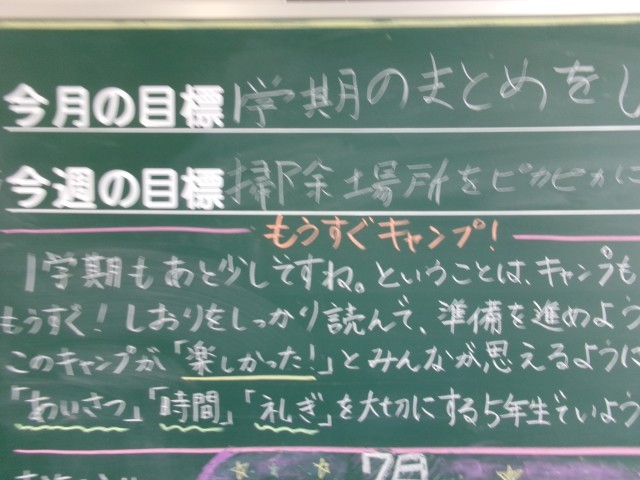 今月の目標 1学期のまとめをし
今週の目標 掃除場所をピカピカに
もうすぐキャンプ!
1学期もあと少しですね。ということは、キャンプも
もうすぐ!しおりをしっかり読んで、準備を進めよう
このキャンプが「楽しかった!」とみんなが思えるように
「あいさつ」「時間」「礼ぎ」を大切にする5年生でいよう
7月